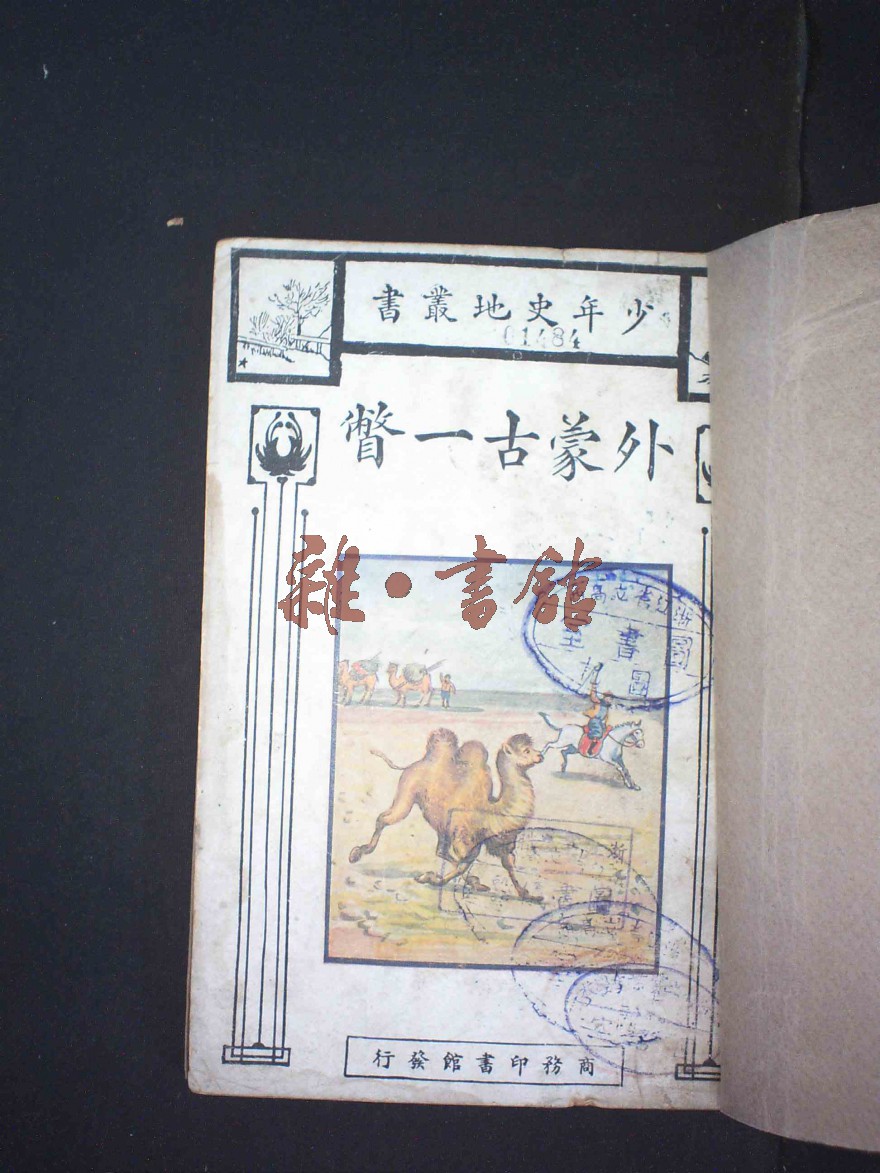 少年史地叢書
01484
外蒙古一瞥
雜·書館
浙江省立高
圖書
商務印書館發行